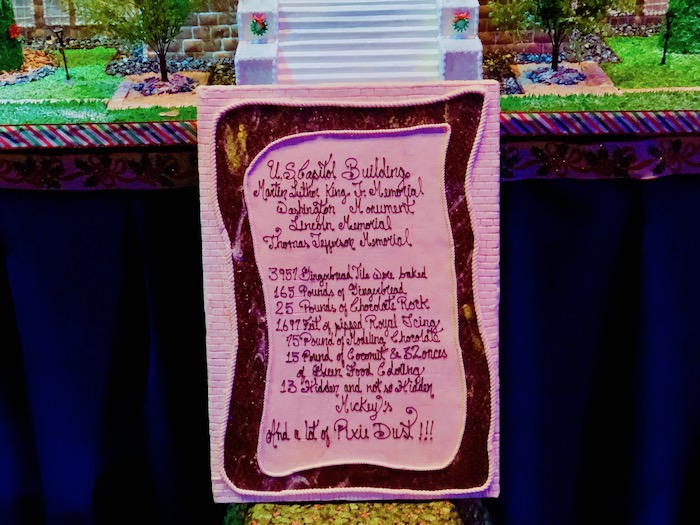 U.S Capitol Building
Martin Luther King Jr Memorial
Washington Monument
Lincoln Memorial
Thomas Jefferson Memorial
3957 Gingerbread Tils were baked
165 Pounds of Gingerbread
25 Pounds of Chocolate Rock
1697 Fat of pipped Royal Icing
75 Pound of Modeling Chocolate
15 Pound of Coconut & 32 onces
of Green Food Coloring
13 Hidden and not so Hidden
Mickey's
And a lot of Pixie Dust !!!